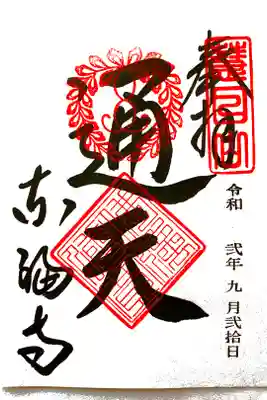 奉拝
令和 弐年 九月弐拾日
通天
東福寺